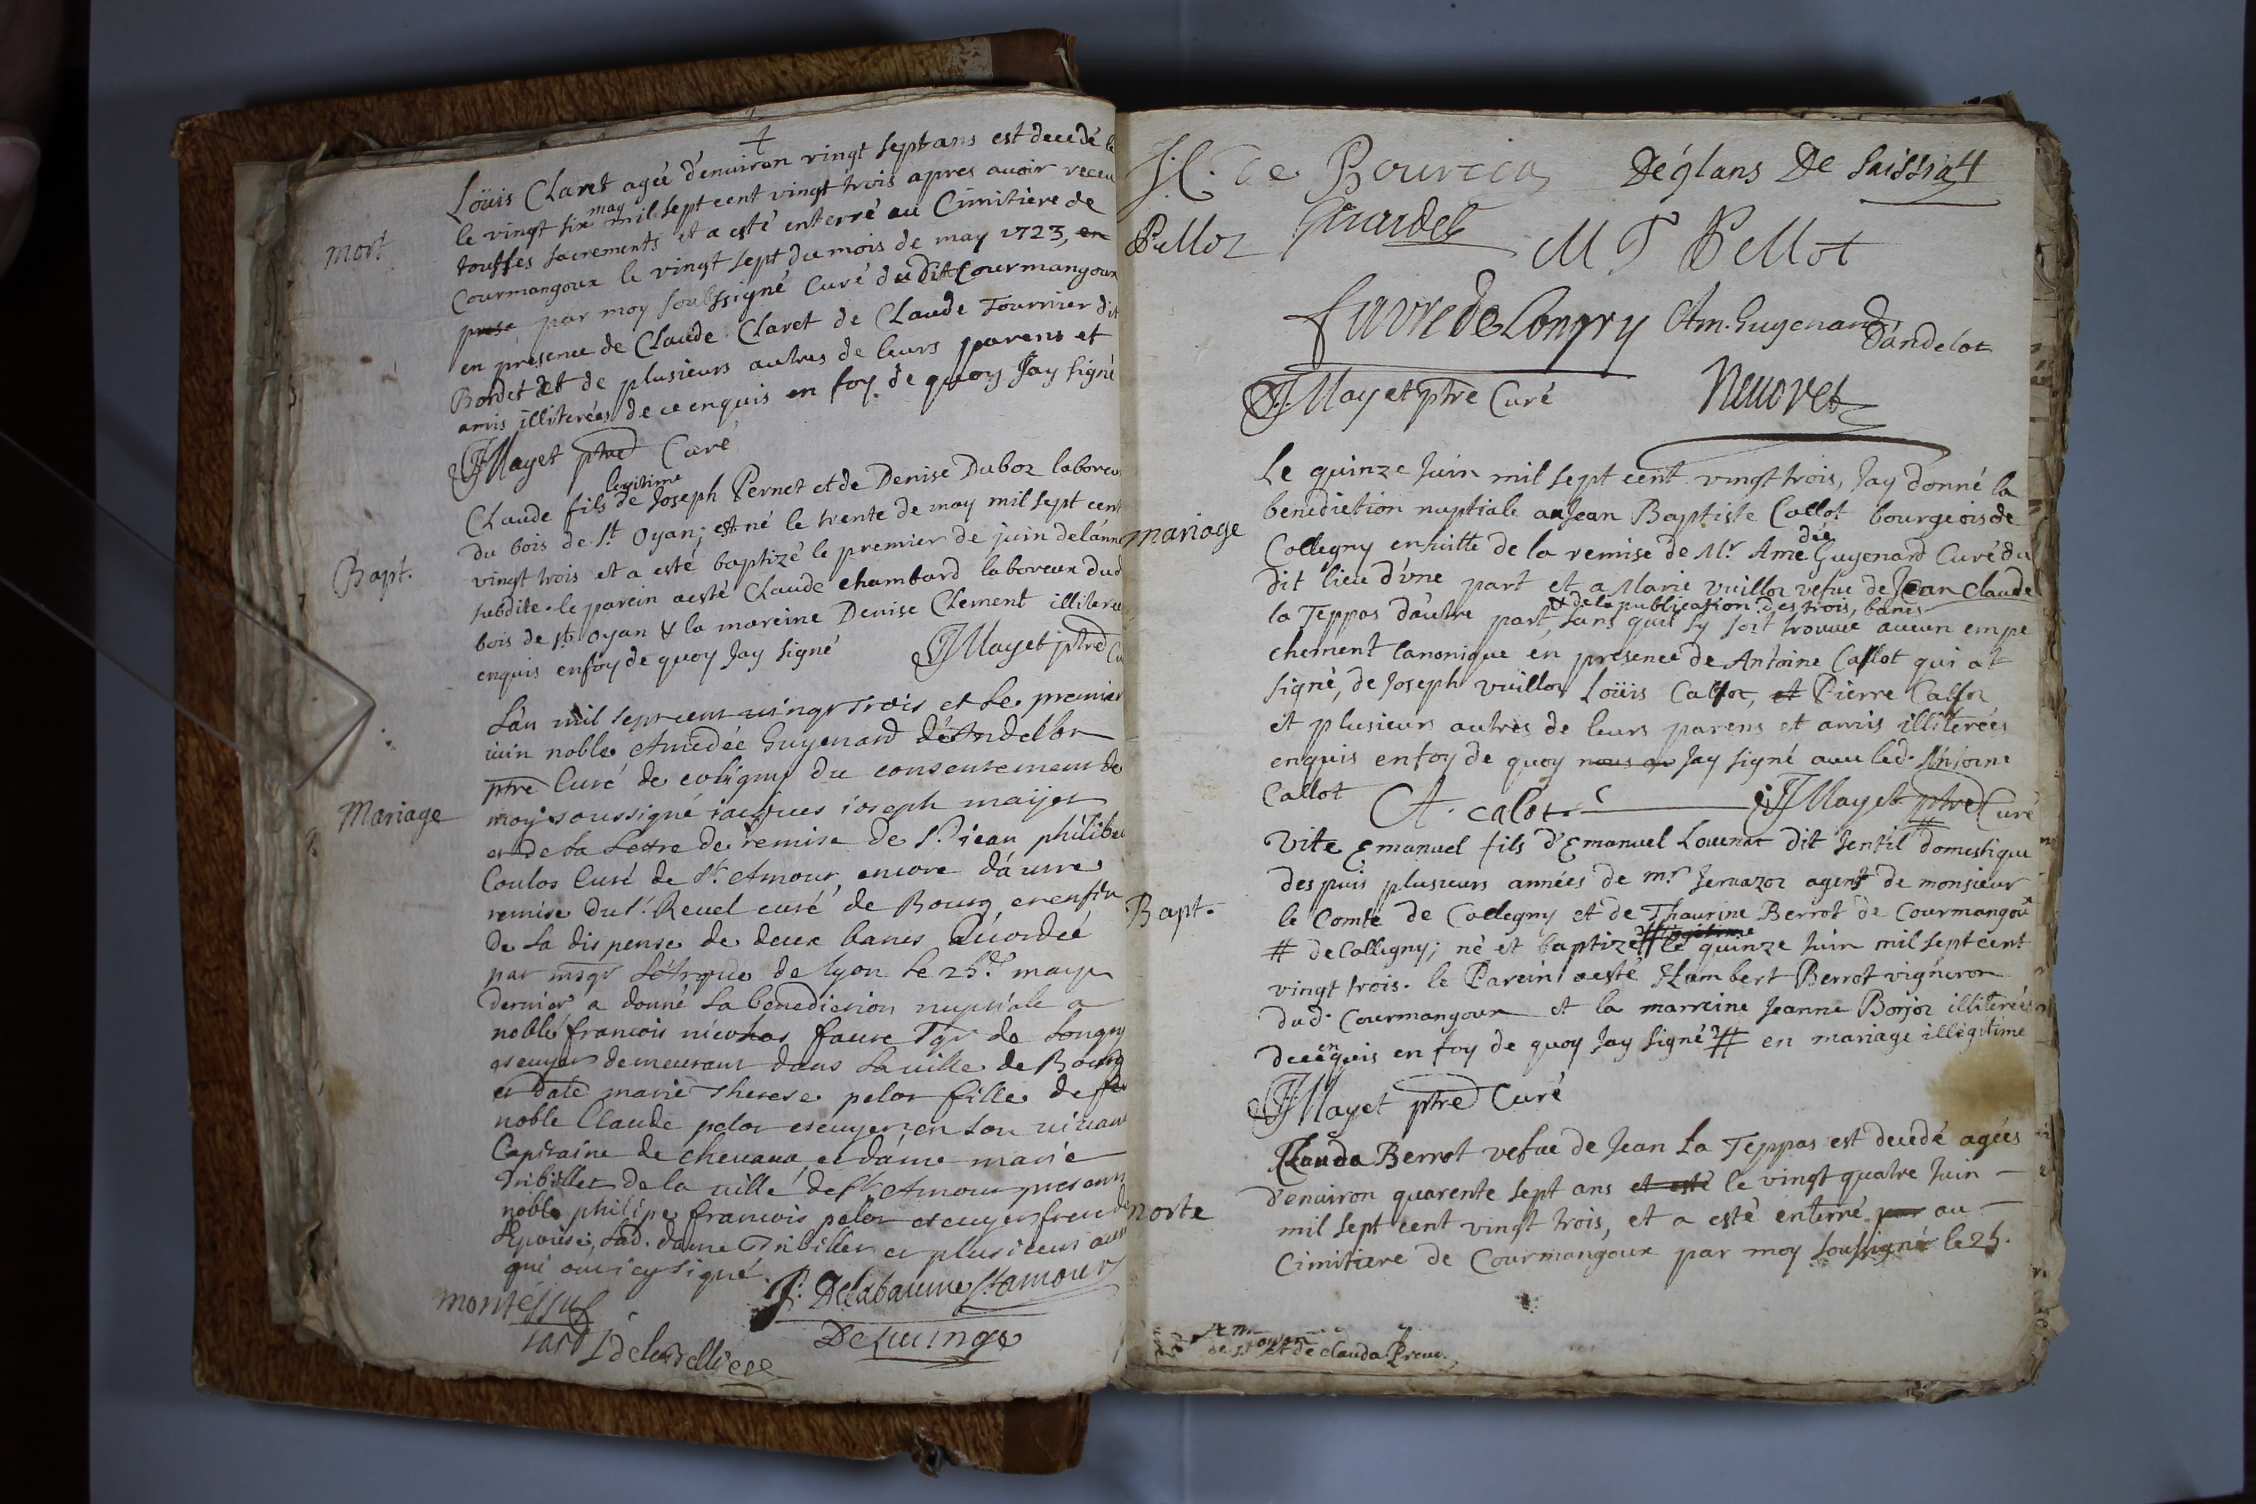 Loüis Claret ageé d'enuiron vingt sept ans est decedé le
le vingt six may mil sept cent vingt trois apres auoir receu
mort
touts les sacrements et a esté enterré au Cimitiere de
Courmangoux le vingt sept du mois de may 1723, en
prese par moy soubssigné Curé du dit Courmangoux
en presence de Claude Claret de Claude Tournier dit
Bordet et de plusieurs autres de leurs parens et
amis illiterées de ce enquis en foy de quoy Jay signé
JJMayet ptre Curé
Claude fils legitime de Joseph Pernet et de Denise Duboz laboreur
du bois de St Oyan; est né le trente de may mil sept cent
Bapt.
vingt trois et a esté baptizé le premier de juin de l'anné
susdite. le parein a esté Claude chambard laboreux dud
bois de st oyan & la mareine Denise Clement illiterée
enquis en foy de quoy Jay signé JJMayet ptre Cu
L'an mil sept cent vingt trois et le premier
iuin noble Amedée Guyenard d'Andelot
ptre Curé de coligny du consentement de
Mariage
moy soussigné iacques ioseph maijet
et de la Lettre de remise de Sr iean philiber
Coulos Curé de St. Amour encore d'autre
remise du Sr. Reuel curé de Bourg et enfin
de la dispense de deux bancs accordée
par msgr de Lyon le 25e may
dernier a donné la benediction nuptiale a
noble francois nicolas faure Sgr de Longry
escuyer demeurant dans la ville de Bourg
et marie Therese pelot fille de feu
noble Claude pelot escuyer en son viuant
Capitaine de cheuaux et dame marie
Tribillet de la ville de St Amour presents
noble philipe francois pelot escuyer frere de
l'epouse, lad. dame Tribillet et plusieurs autres
qui ont icy signé.
montessus
J. Delabaume St amour
DeQuinge
J. C. De
Déglans De Saissia
Pelloz
Girardet
M T Pellot
favre de Longry
Am. Guyenard
Dándelot
JJMayet ptre Curé
Le quinze Juin mil sept cent vingt trois, Jay donné la
benediction nuptiale a Jean Baptiste Callot bourgeois de
mariage
Collegny ensuitte de la remise de Mr Amedié Guyenard Curé du
dit lieu d'vne part et a Marie vuilloz vefue de Jean Claude
& de la publication des trois bancs
la Teppas dautre part, sans quil sy soit trouué aucun empe
chement canonique en presence de Antoine Callot qui at
signé, de Joseph vuilloz Loüis Callot, et Pierre Callot
et plusieurs autres de leurs parens et amis illiterées
enquis en foy de quoy Jay signé auec led. Antoine
Callot A. calot JJMayet ptre Curé
Vite Emanuel fils d'Emanuel Louenat dit Jentil domestique
despuis plusieurs années de mr Jeruazoz agent de monsieur
Bapt.
le Comte de Collegny et de Thaurine Berrot de Courmangoux
# de Collegny; né et baptizé legitime le quinze Juin mil sept cent
vingt trois. le Parein a esté Humbert Berrot vigneron
dud. Courmangoux et la marreine Jeanne Borjoz illiterées
de ce enquis en foy de quoy Jay signé # en mariage illégitime
JJMayet ptre Curé
Clauda Berrot vefue de Jean La Teppas est decedé ageés
d'enuiron quarente sept ans et esté le vingt quatre Juin
morte
mil sept cent vingt trois, et a esté enterré par au
Cimitiere de Courmangoux par moy soussigné le 25.
de st oyan et de clauda